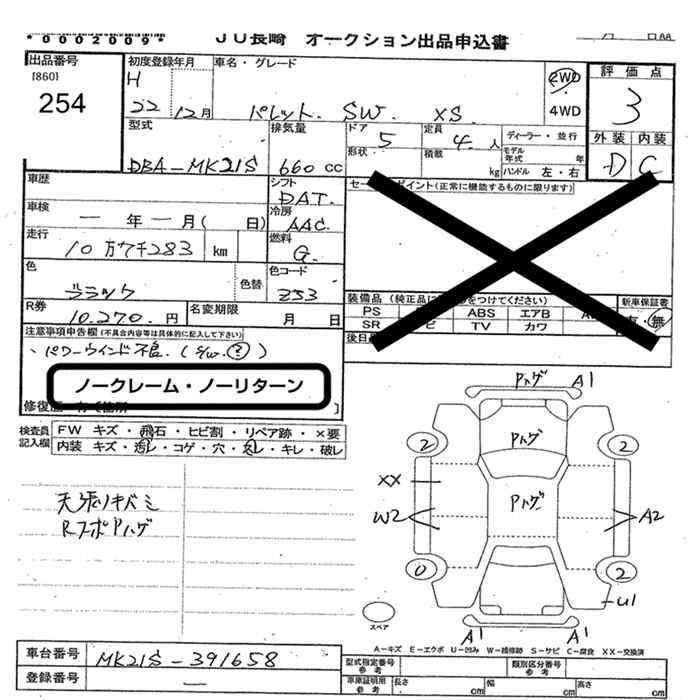 *0002009*
JU長崎 オークション出品申込書
月 日
出品番号
[860]
254
初度登録年月
H
22 12月
車名・グレード
パレット SW XS
2WD
4WD
評価点
3
外装 内装
D C
型式
DBA-MK21S
排気量
660 CC
ドア 5
形状
定員 4 人
積載 kg
ディーラー・並行
モデル年式 年
ハンドル 左・右
車歴
シフト
DAT.
セールスポイント(正常に機能するものに限ります)
車検
一 年 一 月( 日)
冷房
AAC.
走行
10万7千283 km
燃料
G.
色
ブラック
色替
色コード
Z53
R券
10,270. 円
名変期限
月 日
装備品
PS ABS エアB
SR TV カワ
新車保証書
有・無
後日
注意事項申告欄(不具合内容等は具体的に記入して下さい)
、パワーウインド不良.(S/W. ?)
ノークレーム・ノーリターン
修復歴
検査員記入欄
FW キズ・飛石・ヒビ割・リペア跡・×要
内装 キズ・汚レ・コゲ・穴・スレ・キレ・破レ
天張リキバミ
RスポPハゲ
Pハゲ A1
Pハゲ
2 2
XX
Pハゲ
W2 A2
0 2
U1
A1 A1
スペア
A-キズ E-エクボ U-凹み W-補修跡 S-サビ C-腐食 XX-交換済
車台番号
MK21S-391658
登録番号
—
型式指定番号 参考
類別区分番号 参考
車庫証明用 参考 長さ cm 幅 cm 高さ cm